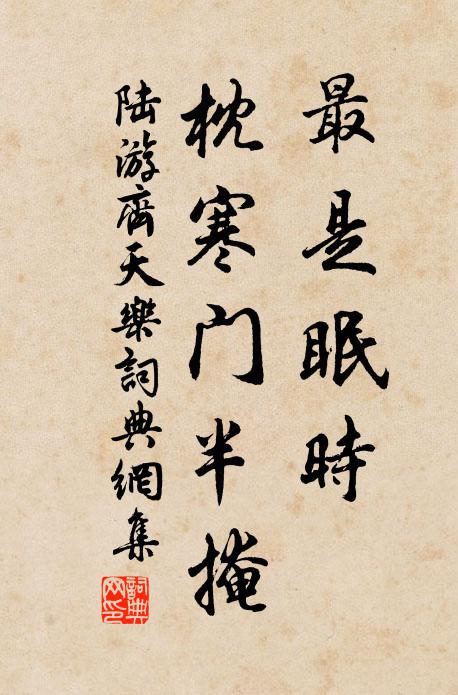 最是眠時
枕寒门半掩
陆游齊天樂詞典網集
詞典网印